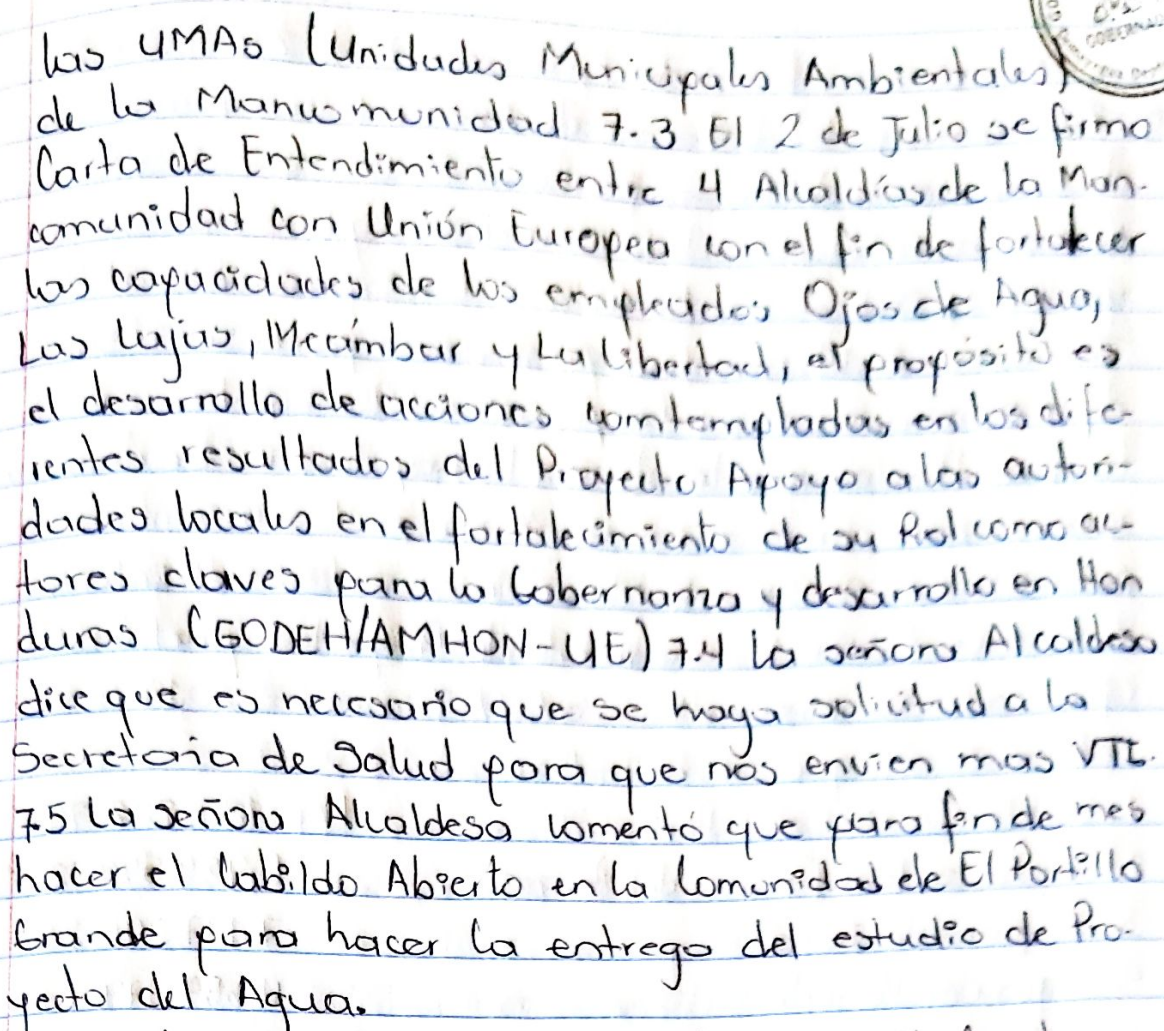 las UMAs (Unidades Municipales Ambientales)
de la Mancomunidad 7.3 El 2 de Julio se firmo
Carta de Entendimiento entre 4 Alcaldías de la Man-
comunidad con Unión Europea con el fin de fortalecer
las capacidades de los empleados Ojos de Agua,
Las Lajas, Meámbar y La Libertad, el propósito es
el desarrollo de acciones comtempladas en los dife-
rentes resultados del Proyecto Apoyo a las autori-
dades locales en el fortalecimiento de su Rol como ac-
tores claves para la Gobernanza y desarrollo en Hon
duras (GODEH/AMHON-UE) 7.4 La señora Alcaldesa
dice que es necesario que se haga solicitud a la
Secretaria de Salud para que nos envien mas
7.5 La señora Alcaldesa comentó que para fin de mes
hacer el Cabildo Abierto en la Comunidad de El Portillo
Grande para hacer la entrega del estudio de Pro-
yecto del Agua.